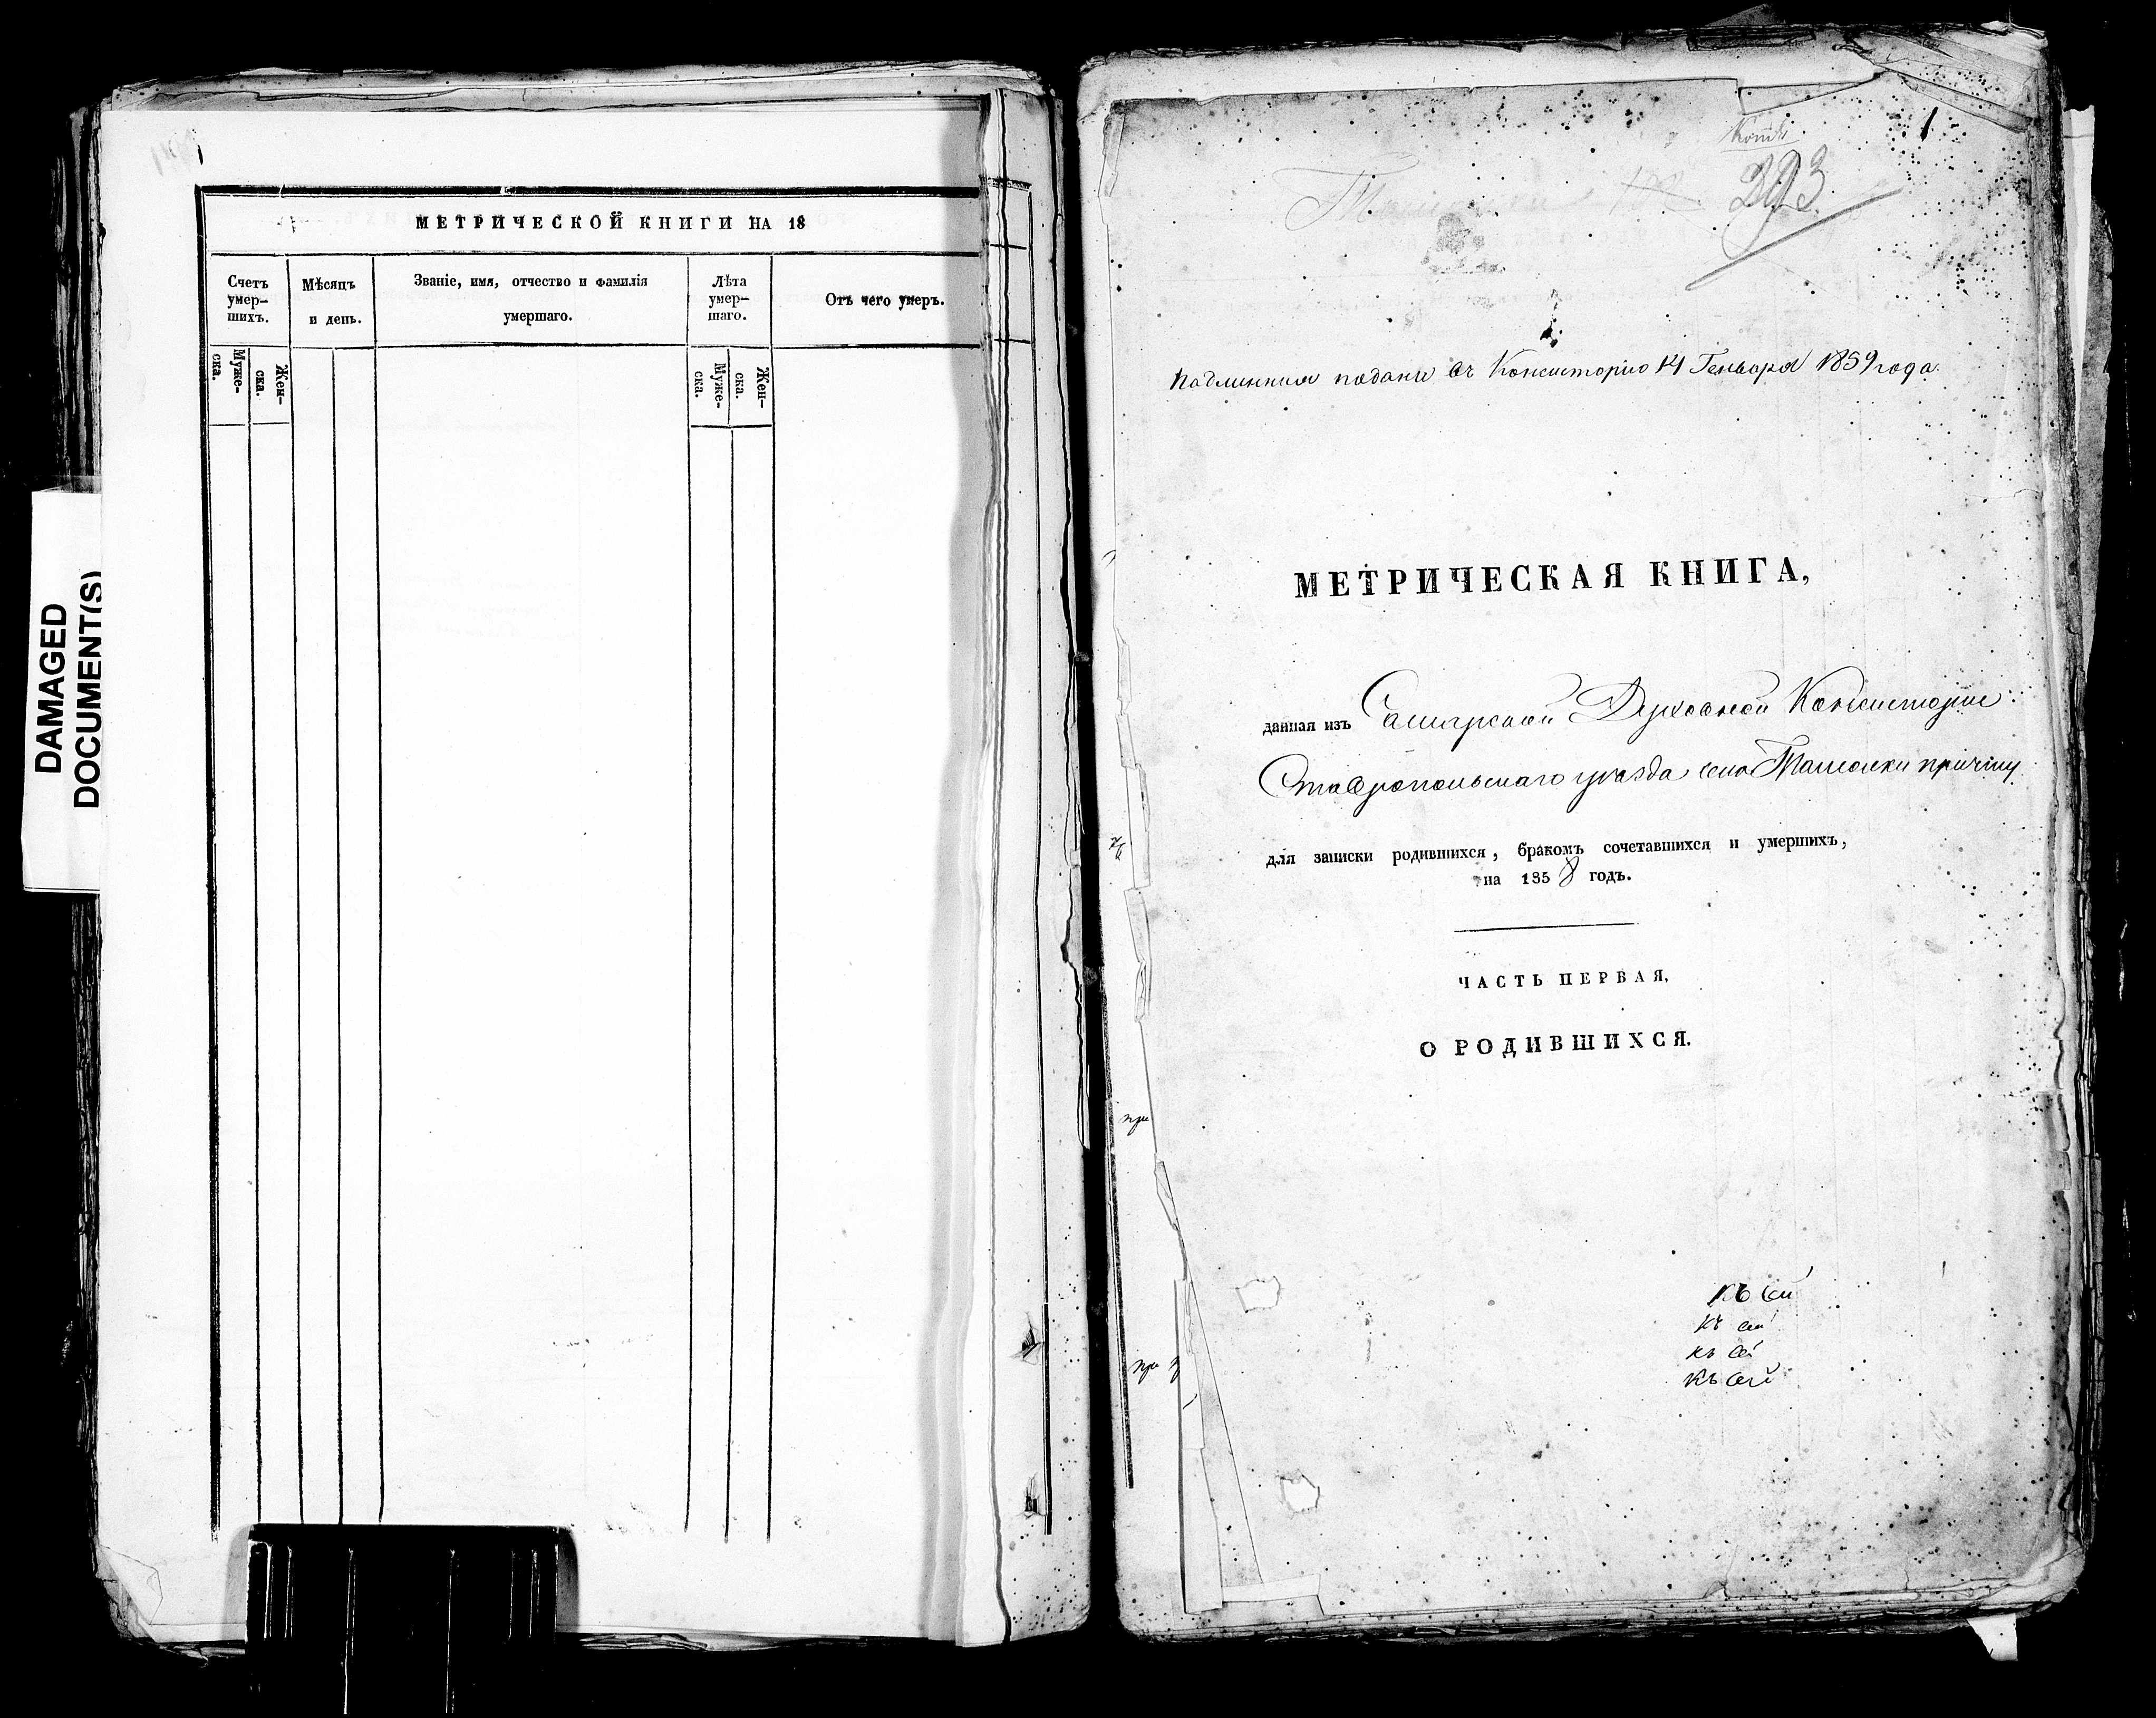 DAMAGED
DOCUMENT(S)
МЕТРИЧЕСКОЙ КНИГИ НА 18
Счетъ
умер-
шихъ.
Мѣсяцъ
и день.
Званіе, имя, отчество и фамилія
умершаго.
Лѣта
умер-
шаго.
Отъ чего умеръ.
Муже-
ска.
Жен-
ска.
Муже-
ска.
Жен-
ска.
1
Копія
393
Подлинныя поданы въ Консисторію 14 Генваря 1859 года.
МЕТРИЧЕСКАЯ КНИГА,
данная изъ Самарской Духовной Консисторіи
Ставропольскаго уѣзда села Ташолки причту
для записки родившихся, бракомъ сочетавшихся и умершихъ,
на 1858 годъ.
ЧАСТЬ ПЕРВАЯ,
О РОДИВШИХСЯ.
при
при
Къ сей
къ сей
къ сей
Къ сей